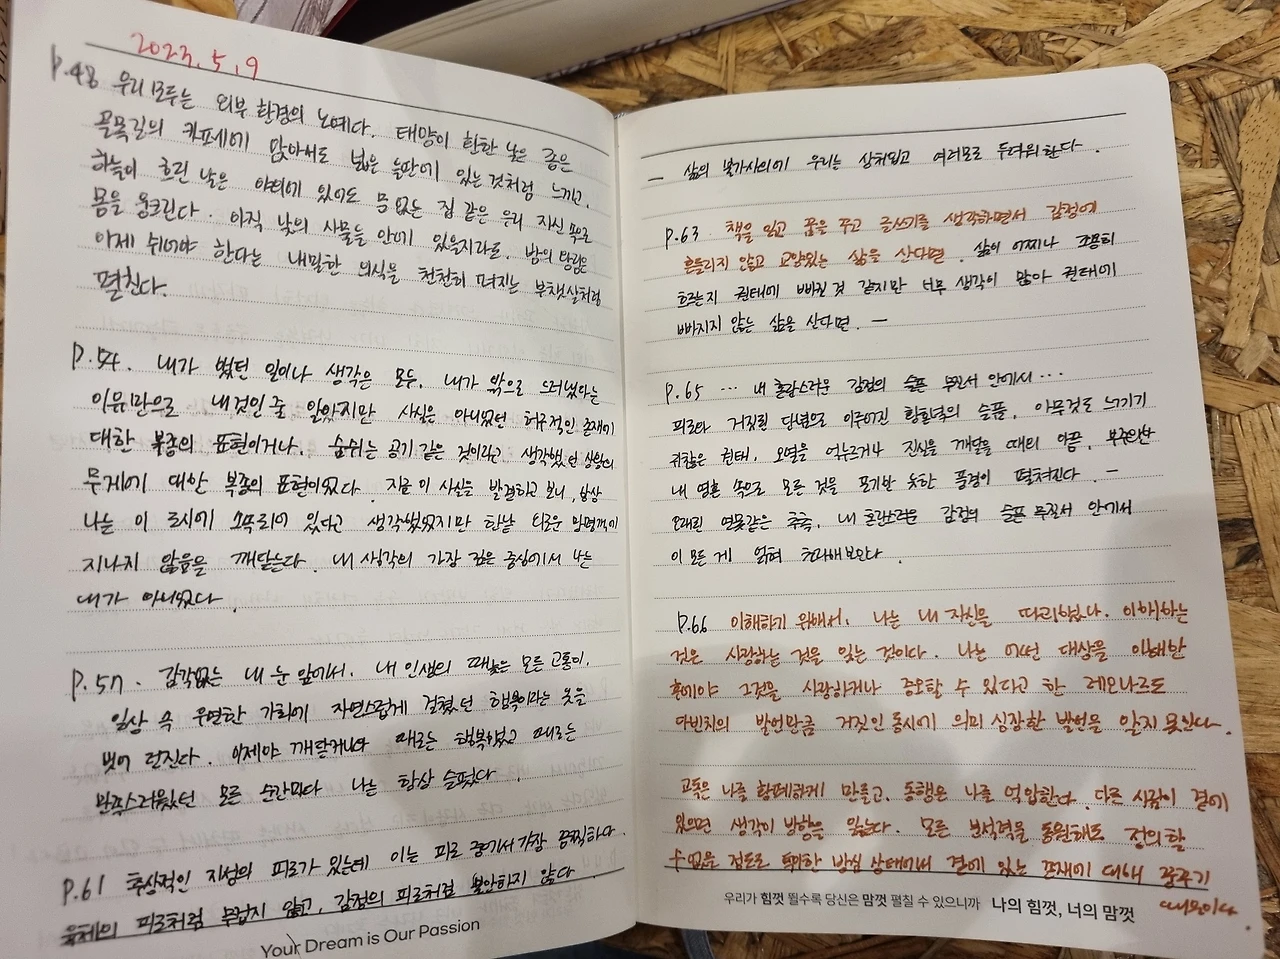 2023. 5. 9
p.48 우리 모두는 외부 환경의 노예다. 태양이 환한 날은 좁은
골목길의 카페에 앉아서도 넓은 들판에 있는 것처럼 느끼고,
하늘이 흐린 날은 야외에 있어도 문 없는 집 같은 우리 자신 쪽으로
몸을 웅크린다. 아직 낮의 사물들 안에 있을지라도, 밤의 당도는
이제 쉬어야 한다는 내밀한 의식을 천천히 펴지는 부챗살처럼
펼친다.
p.54. 내가 했던 일이나 생각은 모두, 내가 밖으로 드러냈다는
이유만으로 내 것인 줄 알았지만 사실은 아니었던 허구적인 존재에
대한 복종의 표현이거나, 숨쉬는 공기 같은 것이라고 생각했던 상황의
무게에 대한 복종의 표현이었다. 지금 이 사실을 발견하고 보니, 항상
나는 이 도시에 소속되어 있다고 생각했었지만 한낱 외로운 망명객에
지나지 않음을 깨닫는다. 내 생각의 가장 깊은 중심에서 나는
내가 아니었다.
p.57. 감각없는 내 눈 앞에서, 내 인생의 때늦은 모든 고통이,
일상 속 우연한 기회에 자연스럽게 걸쳤던 행복이라는 옷을
벗어 던진다. 이제야 깨닫거니와 때로는 행복했고 때로는
만족스러웠던 모든 순간마다 나는 항상 슬펐다.
p.61 추상적인 지성의 피로가 있는데 이는 피로 중에서 가장 끔찍하다.
육체의 피로처럼 무겁지 않고, 감정의 피로처럼 불안하지 않다.
Your Dream is Our Passion
— 삶의 불가사의에 우리는 상처입고 여러모로 두려워한다.
p.63. 책을 읽고 꿈을 꾸고 글쓰기를 생각하면서 감정에
흔들리지 않고 교양있는 삶을 산다면. 삶이 어찌나 조용히
흐르는지 권태에 빠진 것 같지만 너무 생각이 많아 권태에
빠지지 않는 삶을 산다면. —
p.65 … 내 혼란스러운 감정의 슬픈 무질서 안에서…
피로와 거짓된 단념으로 이루어진 황혼녘의 슬픔, 아무것도 느끼기
귀찮은 권태, 오열을 억누르거나 진실을 깨달을 때의 아픔, 부주의한
내 영혼 속으로 모든 것을 포기한 듯한 풍경이 펼쳐진다. —
내 혼란스러운 감정의 슬픈 무질서 안에서
이 모든 게
p.66 이해하기 위해서, 나는 내 자신을 파괴했다. 이해하는
것은 사랑하는 것을 잊는 것이다. 나는 어떤 대상을 이해한
후에야 그것을 사랑하거나 증오할 수 있다고 한 레오나르도
다빈치의 발언만큼 거짓인 동시에 의미 심장한 발언을 알지 못한다.
고독은 나를 황폐하게 만들고, 동행은 나를 억압한다. 다른 사람이 곁에
있으면 생각이 방향을 잃는다. 모든 분석력을 동원해도 정의할
수 없을 정도로 특이한 방심 상태에서 곁에 있는 존재에 대해 꿈꾸기
때문이다
우리가 힘껏 뛸수록 당신은 맘껏 펼칠 수 있으니까 나의 힘껏, 너의 맘껏